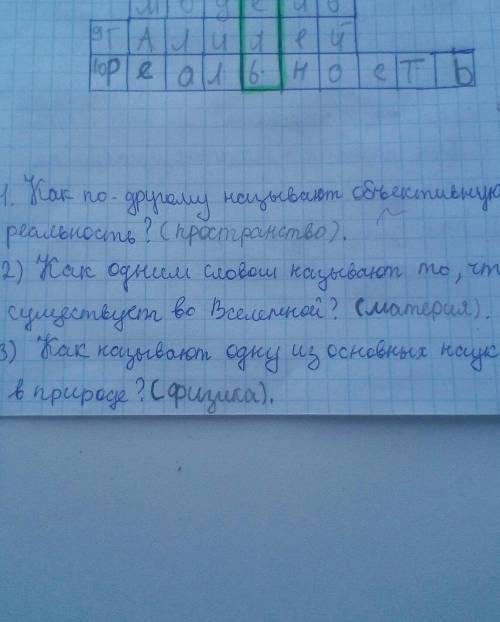 9Г А Л И Л Е Й
10Р е а л ь н о с т ь
1. Как по-другому называют объективную
реальность? (пространство).
2) Как одним словом называют то, чт
существует во Вселенной? (материя).
3) Как называют одну из основных наук
в природе? (физика).